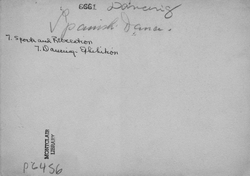 6991 Dancing
Spanish Dance.
1. Sports and Recreation
7. Dancing - Exhibition
MONTCLAIR
LIBRARY
P2456